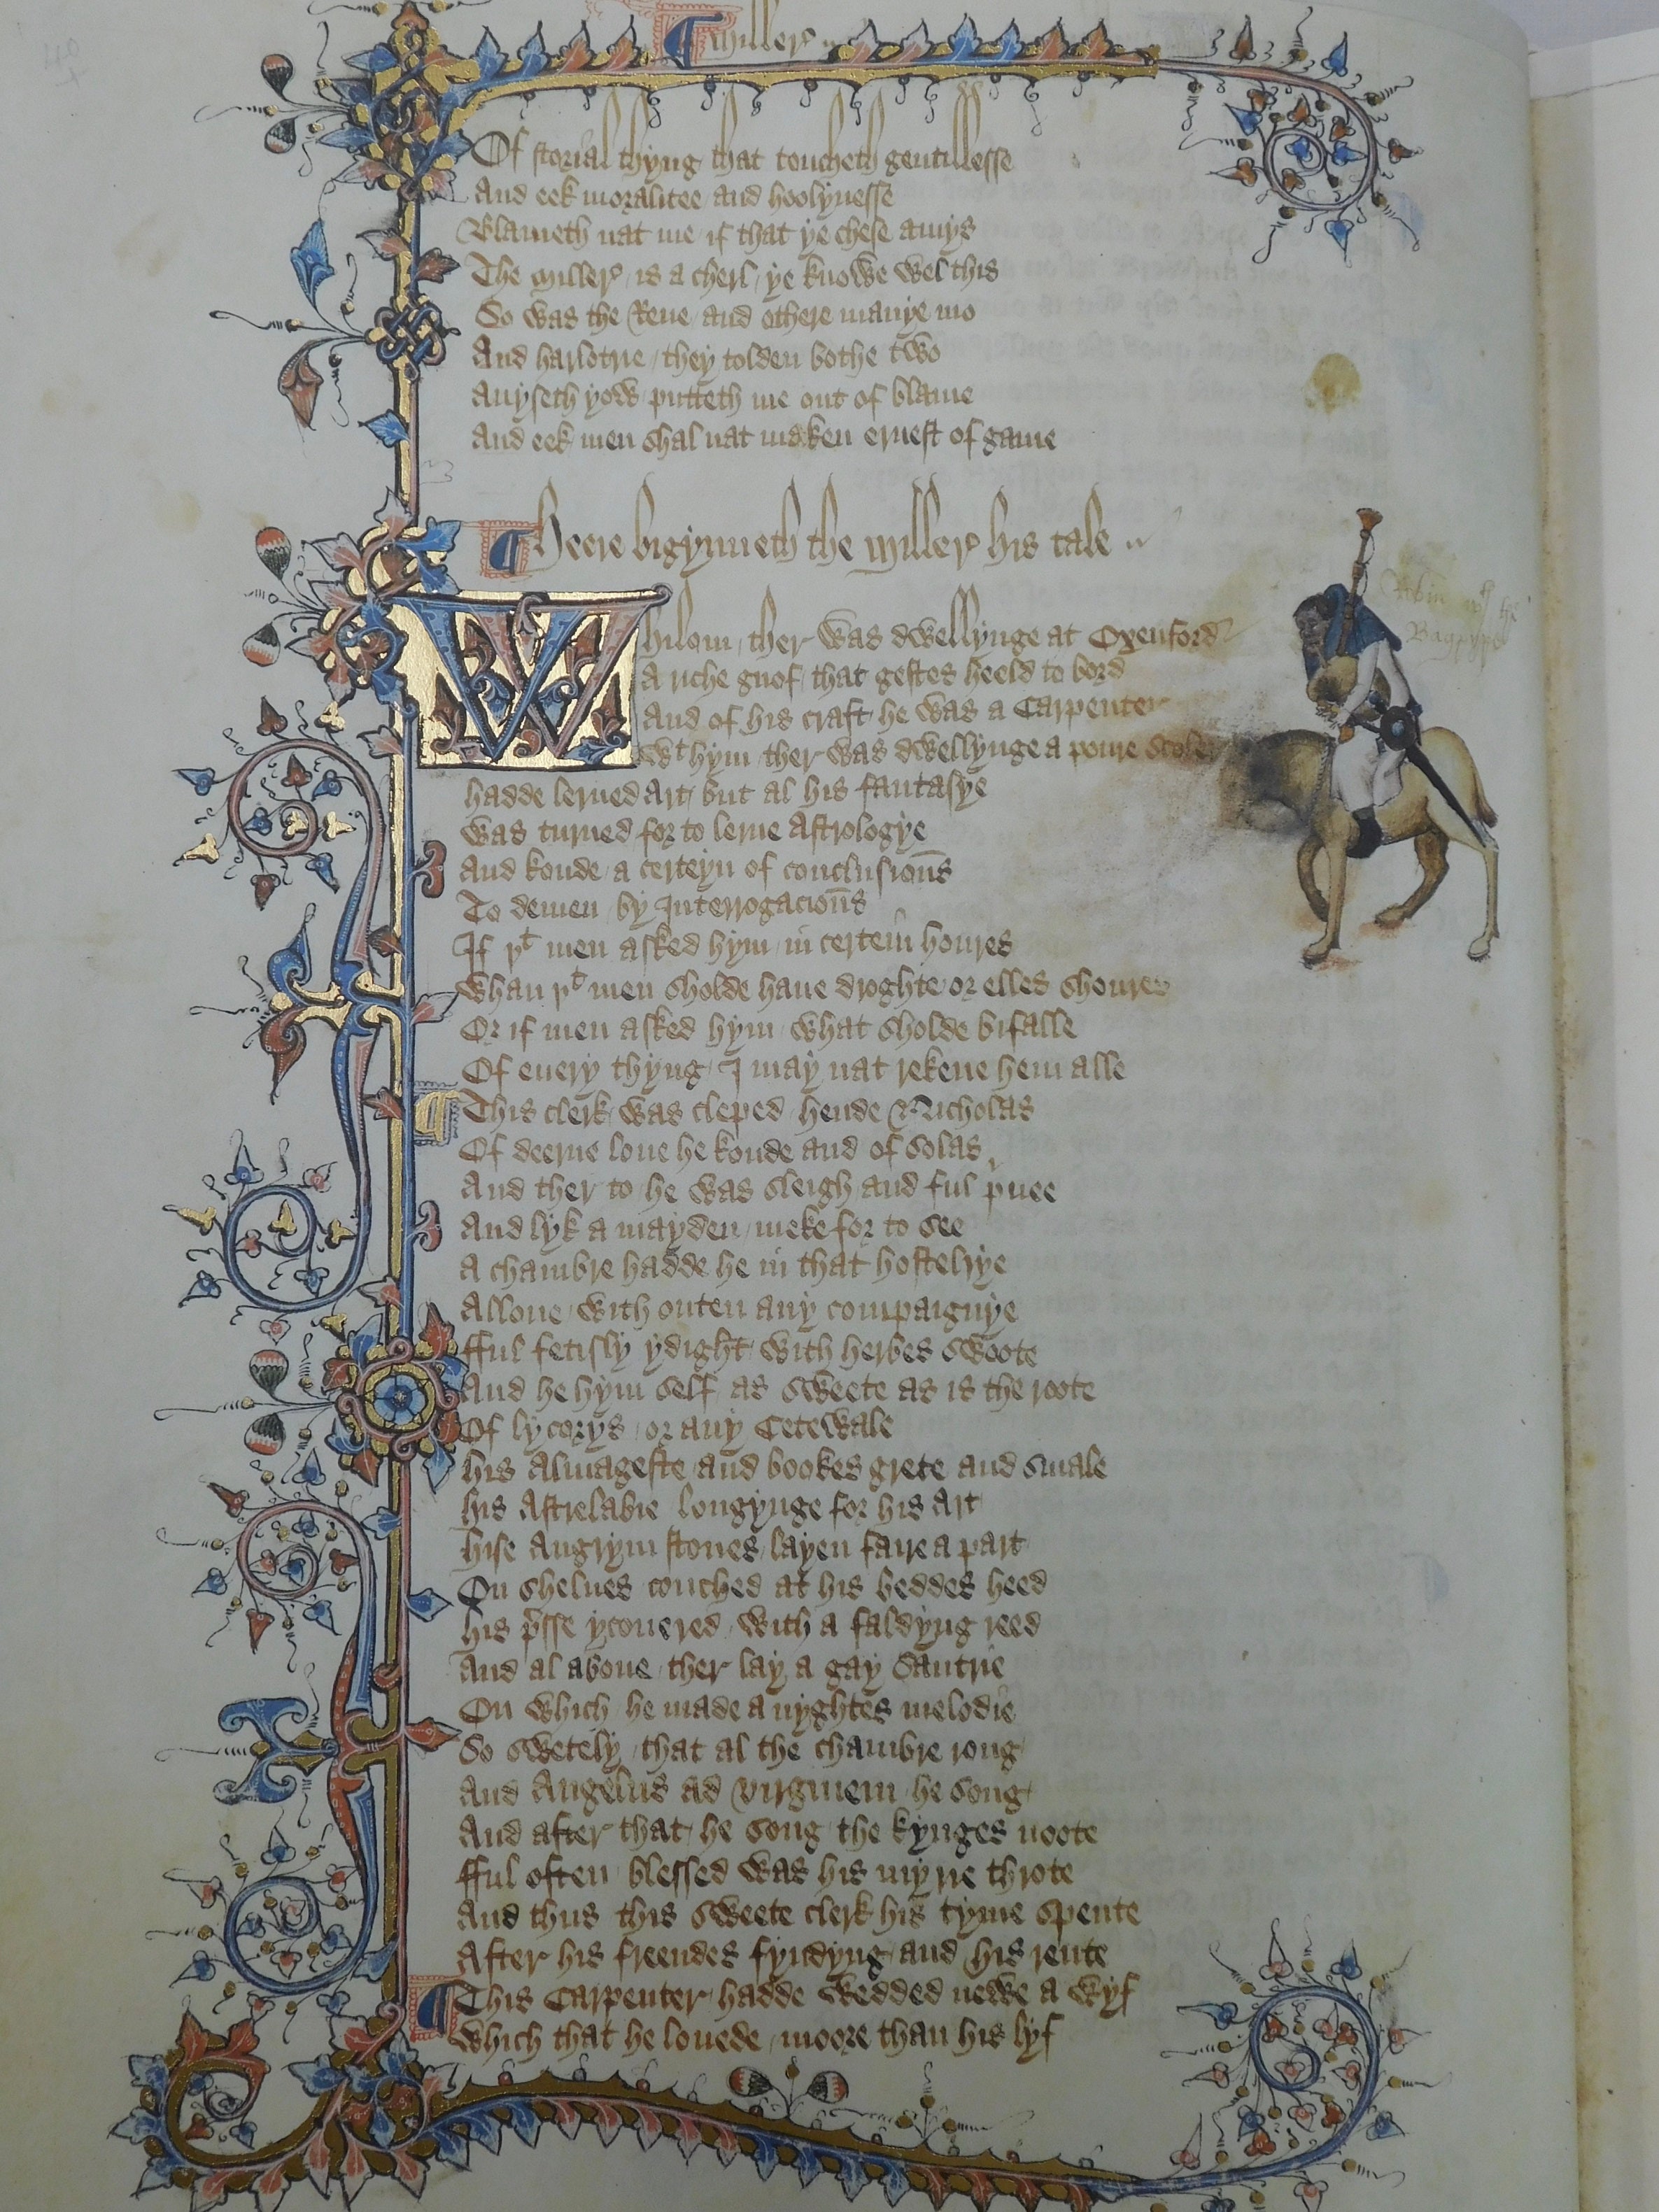 ¶ Miller
Of storial thyng that toucheth gentillesse
And eek moralitee and hoolynesse
Blameth nat me if that ye chese amys
The Miller is a cherl ye knowe wel this
So was the Reue and othere manye mo
And harlotrie they tolden bothe two
Auyseth yow putteth me out of blame
And eek men shal nat maken ernest of game
¶ Heere bigynneth the Miller his tale
Whilom ther was dwellynge at Oxenford
A riche gnof that gestes heeld to bord
And of his craft he was a Carpenter
Wt hym ther was dwellynge a poure Scoler
hadde lerned Art but al his fantasye
Was turned for to lerne Astrologye
And koude a certeyn of conclusiouns
To demen by Interrogaciouns
If þt men asked hym in certein houres
Whan þt men sholde haue droghte or elles shoures
Or if men asked hym what sholde bifalle
Of euery thyng I may nat rekene hem alle
¶ This clerk was cleped hende Nicholas
Of deerne loue he koude and of solas
And ther to he was sleigh and ful puee
And lyk a mayden meke for to see
A chambre hadde he in that hostelrye
Allone with outen any compaignye
fful fetisly ydight with herbes swoote
And he hym self as sweete as is the roote
Of lycorys or any Cetewale
his Almageste and bookes grete and smale
his Astrelabie longynge for his Art
hise Augrym stones layen faire a part
On shelues couched at his beddes heed
his psse ycouered with a faldyng reed
And al aboue ther lay a gay Sautrie
On which he made a nyghtes melodie
So swetely that al the chambre rong
And Angelus ad virginem he song
And after that he song the kynges noote
fful often blessed was his myrie throte
And thus this sweete clerk his tyme spente
After his freendes fyndyng and his rente
¶ This Carpenter hadde wedded newe a wyf
Which that he louede moore than his lyf
Robin wth the
Bagpype